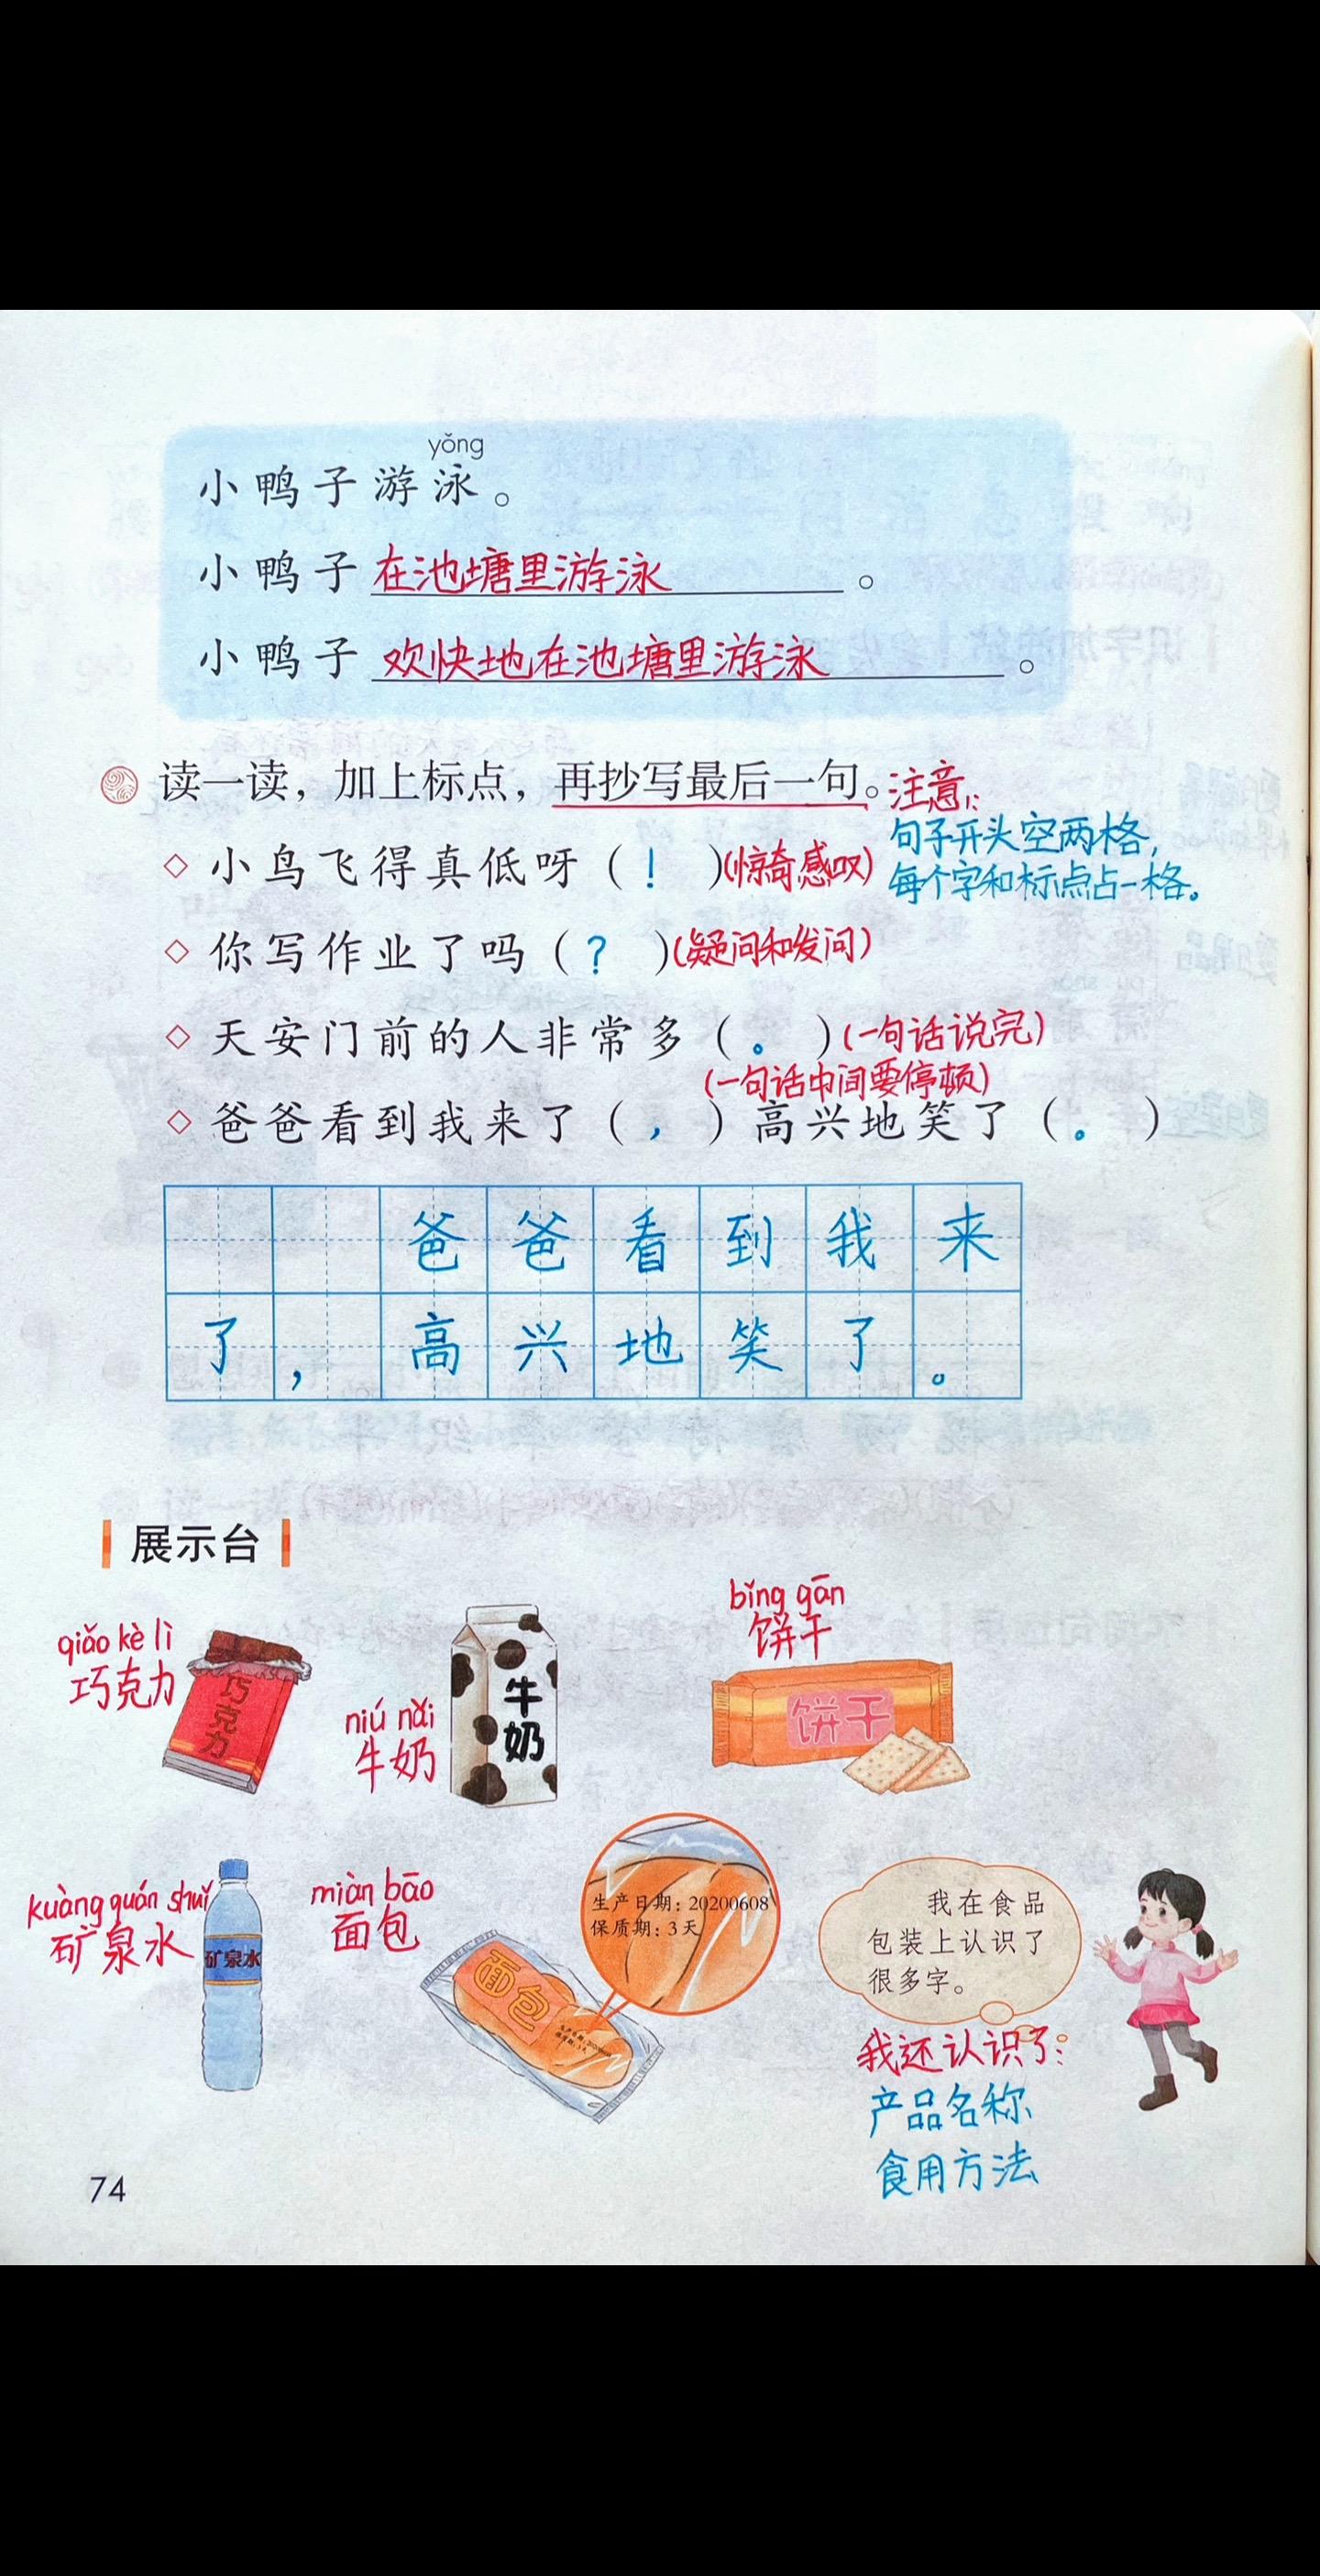 yǒng
小鸭子游泳。
小鸭子在池塘里游泳。
小鸭子欢快地在池塘里游泳。
读一读，加上标点，再抄写最后一句。注意：
句子开头空两格，
每个字和标点占一格。
◇小鸟飞得真低呀（！）(惊奇感叹)
◇你写作业了吗（？）(疑问和发问)
◇天安门前的人非常多（。）(一句话说完)
(一句话中间要停顿)
◇爸爸看到我来了（，）高兴地笑了（。）
爸爸看到我来
了，高兴地笑了。
展示台
qiǎo kè lì
巧克力
巧克力
niú nǎi
牛奶
牛奶
bǐng gān
饼干
饼干
kuàng quán shuǐ
矿泉水
矿泉水
miàn bāo
面包
面包
生产日期：20200608
保质期：3天
我在食品
包装上认识了
很多字。
我还认识了：
产品名称
食用方法
74